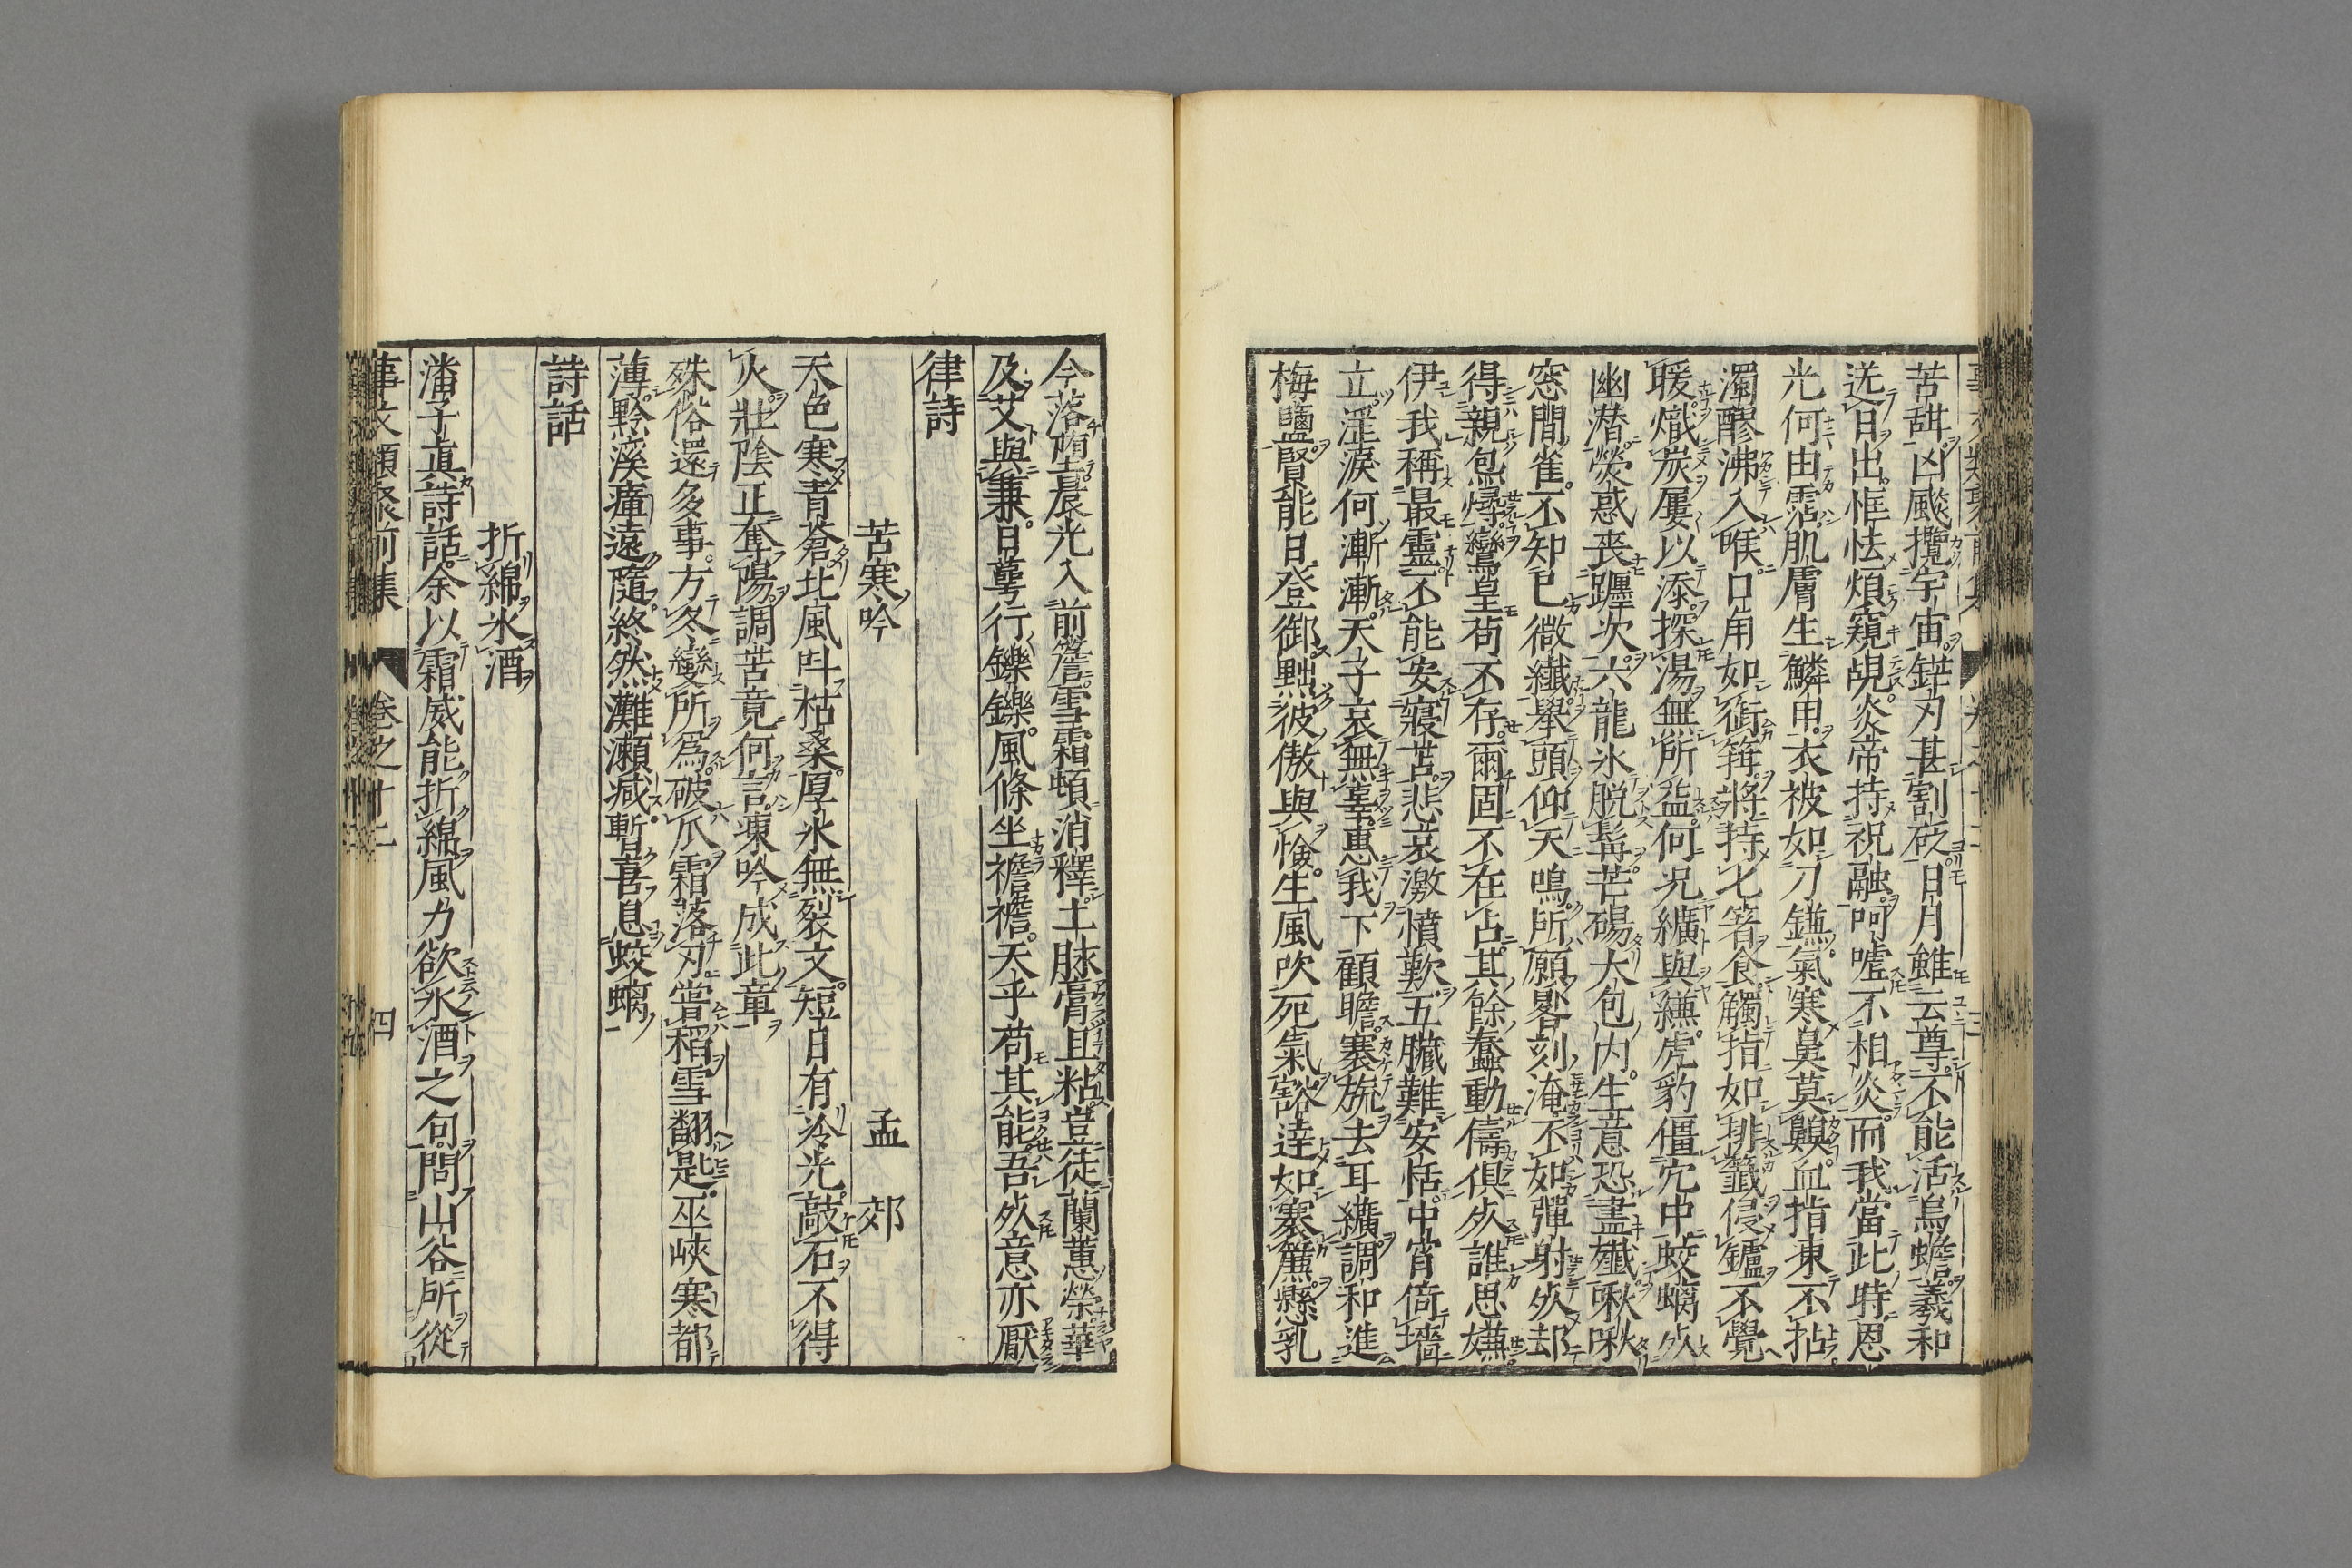 苦甜凶飈攪宇宙鋩刃甚割砭日月雖云尊不能活烏蟾羲和
送日出恇怯煩窺覘炎帝持祝融呵噓不相炎而我當此時恩
光何由霑肌膚生鱗甲衣被如刀鎌氣寒鼻莫齅血指凍不拈
濁醪沸入喉口角如銜箝將持匕箸食觸指如排籤侵鑪不覺
暖熾炭屢以添探湯無所益何况纊與縑虎豹僵穴中蛟螭死
幽潛熒惑喪躔次六龍氷脱髯芒碭大包内生意恐盡殲啾啾
窓間雀不知已微纖舉頭仰天鳴所願晷刻淹不如彈射死却
得親炰燖鸞皇苟不存爾固不在占其餘蠢動儔俱死誰思嫌
伊我稱最靈不能安寢苫悲哀激憤歎五臟難安恬中宵倚墻
立淫淚何漸漸天子哀無辜惠我下顧瞻褰旒去耳纊調和進
梅鹽賢能日登御黜彼傲與憸生風吹死氣豁達如褰簾懸乳
今落墮晨光入前簷雪霜頓消釋土脉膏且粘豈徒蘭蕙榮華
及艾與蒹日蕚行鑠鑠風條坐襜襜天乎苟其能吾死意亦厭
律詩
苦寒吟 孟 郊
天色寒青蒼北風叫枯桑厚氷無裂文短日有冷光敲石不得
火壯陰正奪陽調苦竟何言凍吟成此章
殊俗還多事方冬變所爲破爪霜落刃嘗稻雪翻匙巫峽寒都
薄黔溪瘴遠隨終然灘瀨減暫喜息蛟螭
詩話
折綿氷酒
潘子眞詩話余以霜威能折綿風力欲氷酒之句問山谷所從
事文類聚前集 卷之十二 四